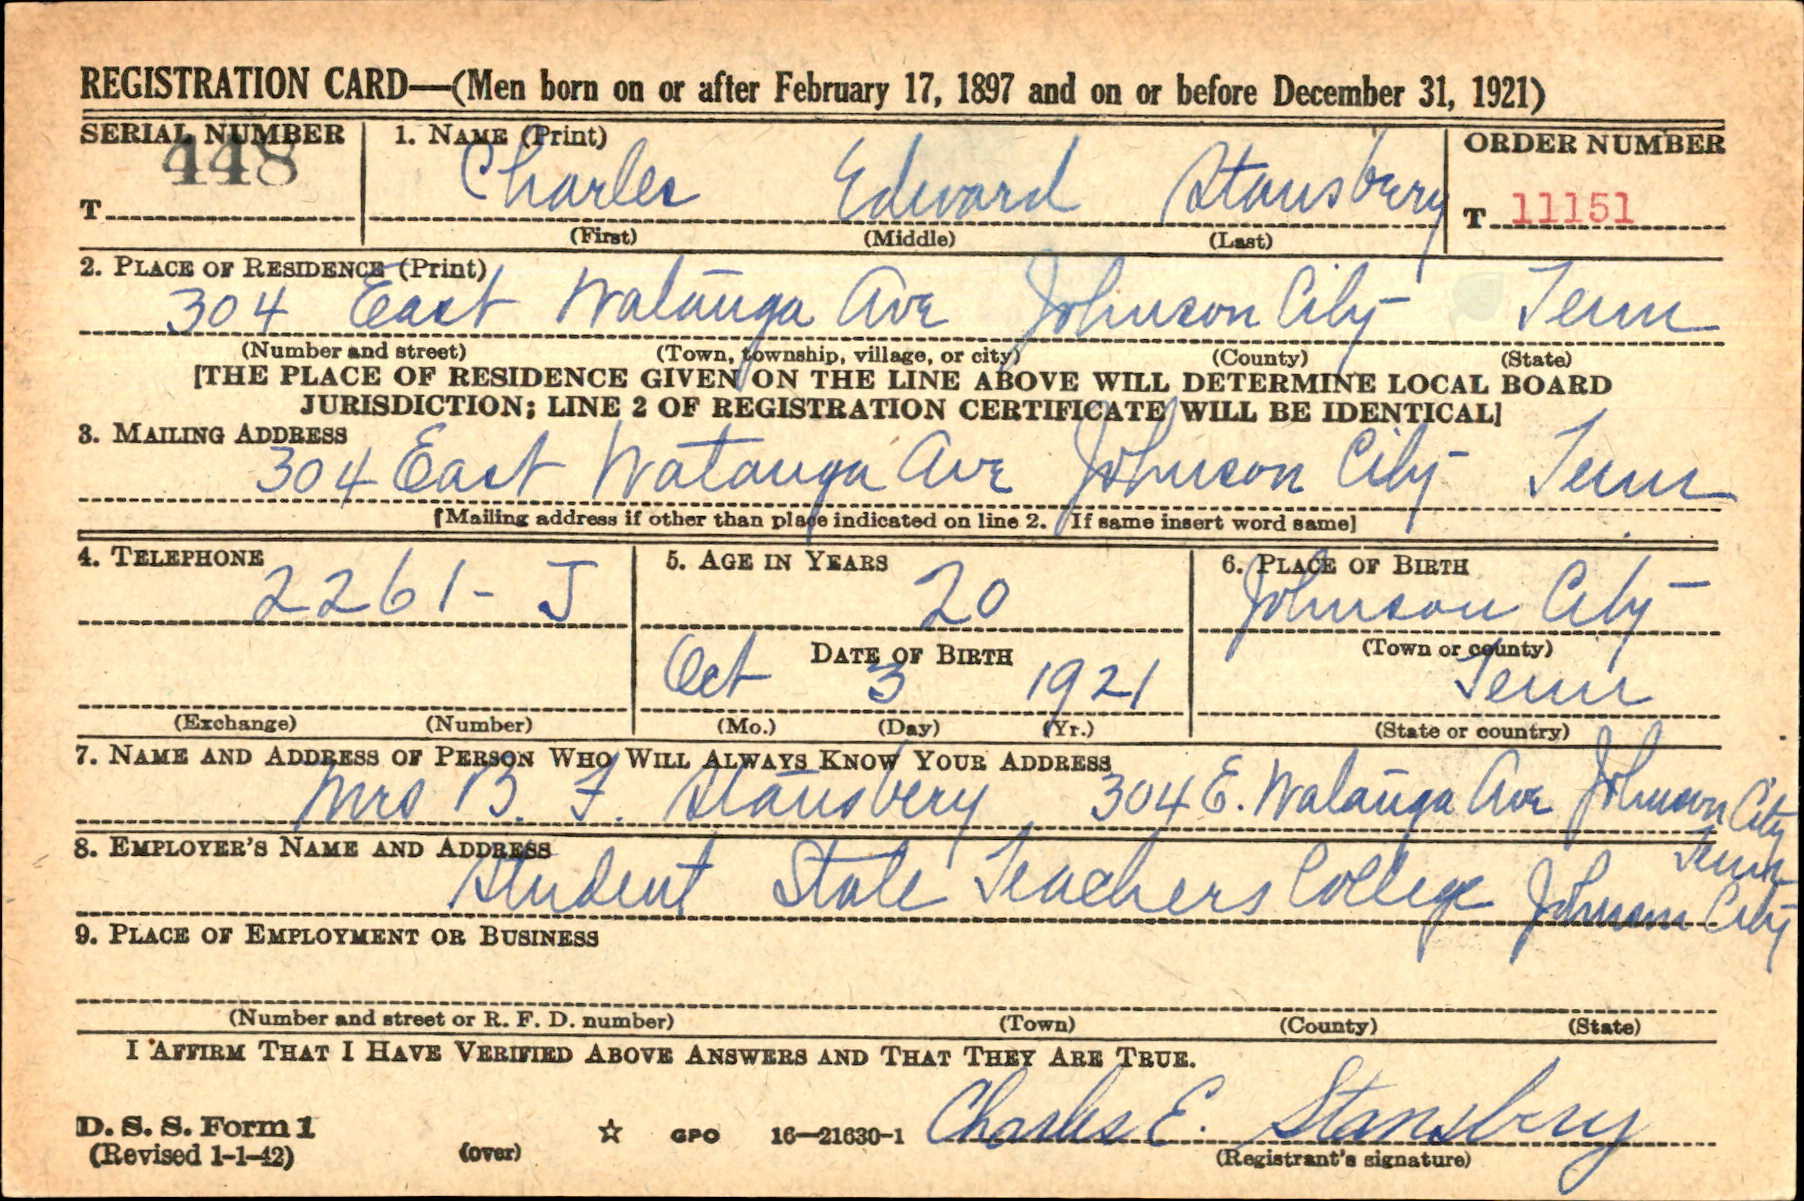 REGISTRATION CARD—(Men born on or after February 17, 1897 and on or before December 31, 1921)
SERIAL NUMBER 1. NAME (Print) ORDER NUMBER
448 Charles Edward Stansbery
T T 11151
(First) (Middle) (Last)
2. PLACE OF RESIDENCE (Print)
304 East Watauga Ave Johnson City Tenn
(Number and street) (Town, township, village, or city) (County) (State)
[THE PLACE OF RESIDENCE GIVEN ON THE LINE ABOVE WILL DETERMINE LOCAL BOARD
JURISDICTION; LINE 2 OF REGISTRATION CERTIFICATE WILL BE IDENTICAL]
3. MAILING ADDRESS
304 East Watauga Ave Johnson City Tenn
[Mailing address if other than place indicated on line 2. If same insert word same]
4. TELEPHONE 5. AGE IN YEARS 6. PLACE OF BIRTH
2261-J 20 Johnson City
DATE OF BIRTH (Town or county)
Oct 3 1921 Tenn
(Exchange) (Number) (Mo.) (Day) (Yr.) (State or country)
7. NAME AND ADDRESS OF PERSON WHO WILL ALWAYS KNOW YOUR ADDRESS
Mrs B. F. Stansbery 304 E. Watauga Ave Johnson City
Tenn
8. EMPLOYER'S NAME AND ADDRESS
Student State Teachers College Johnson City
9. PLACE OF EMPLOYMENT OR BUSINESS
(Number and street or R. F. D. number) (Town) (County) (State)
I AFFIRM THAT I HAVE VERIFIED ABOVE ANSWERS AND THAT THEY ARE TRUE.
D. S. S. Form 1 Charles E. Stansbery
(Revised 1-1-42) (over) ☆ GPO 16—21630-1 (Registrant's signature)